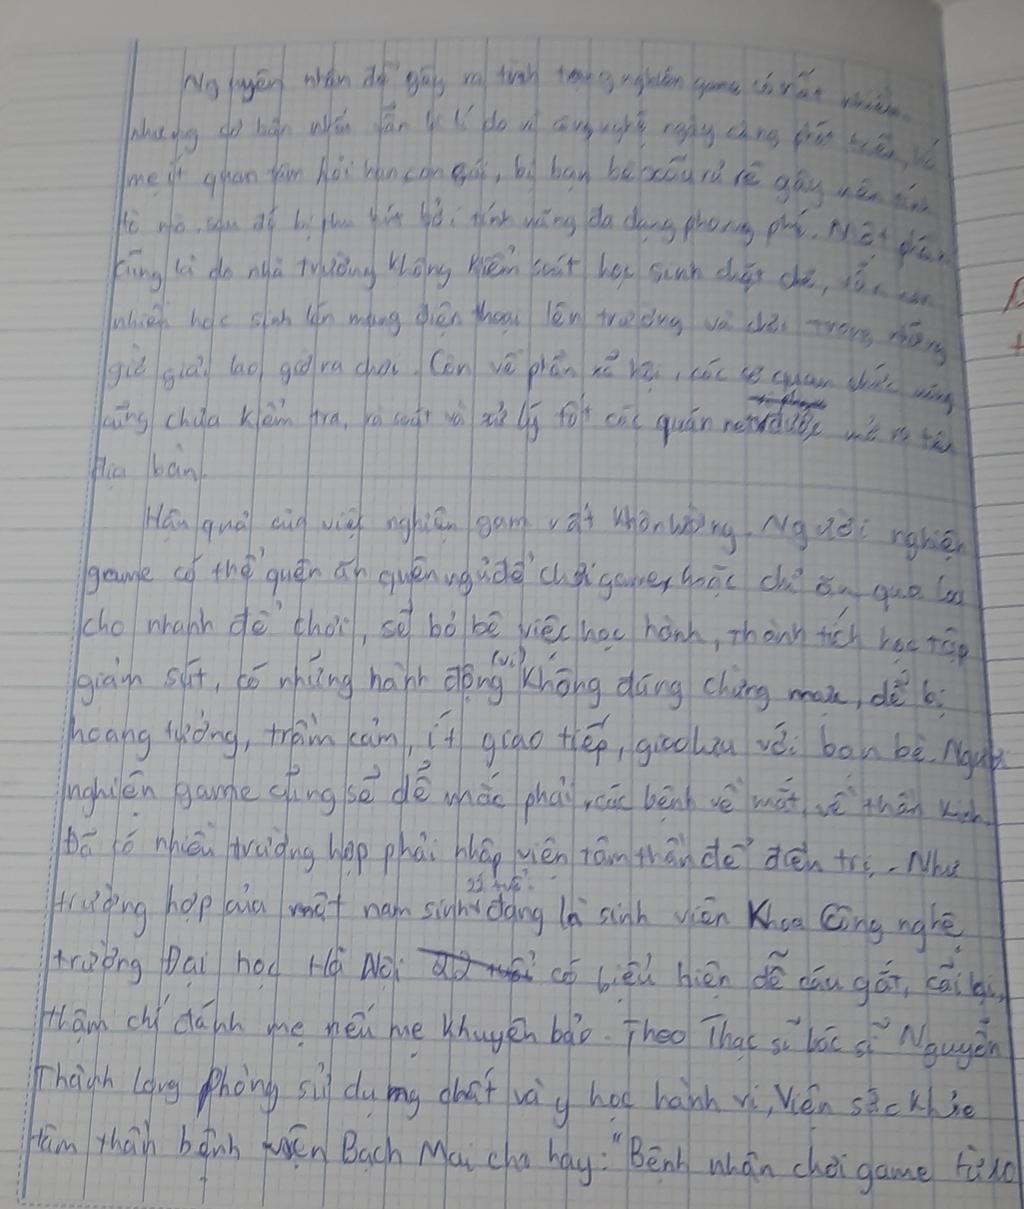 Nguyên nhân để gây ra tình trạng nghiện game có rất nhiều
nhưng do bản nhân vẫn là lí do vì công nghệ ngày càng phát triển,
mẹ ít quan tâm hỏi han con gái, bị bạn bè xấu rủ rê gây nên tính
tò mò, sau đó bị thu hút bởi tính năng đa dạng phong phú. Một phần
cũng là do nhà trường không kiểm soát học sinh chặt chẽ, vẫn còn
nhiều học sinh lén mang điện thoại lên trường và chơi trong những
giờ giải lao, giờ ra chơi. Còn về phần xã hội, các cơ quan chức năng
cũng chưa kiểm tra, rà soát và xử lý tốt các quán net được mở ra trên
địa bàn.
Hậu quả của việc nghiện gam rất khôn lường. Người nghiện
game có thể quên ăn quên ngủ để chơi game, hoặc chỉ ăn qua loa
cho nhanh để chơi, sẽ bỏ bê việc học hành, thành tích học tập
giảm sút, có những hành động (vi) không đúng chừng mực, dễ bị
hoang tưởng, trầm cảm, ít giao tiếp, giao lưu với bạn bè. Người
nghiện game cũng sẽ dễ mắc phải các bệnh về mắt, về thần kinh.
Đã có nhiều trường hợp phải nhập viện tâm thần để điều trị. Như
trường hợp của một nam sinh 22 tuổi đang là sinh viên Khoa Công nghệ
trường Đại học Hà Nội có biểu hiện dễ cáu gắt, cãi lại,
thậm chí đánh mẹ nếu mẹ khuyên bảo. Theo Thạc sĩ bác sĩ Nguyễn
Thành Long Phòng sử dụng chất và y học hành vi, Viện sức khỏe
tâm thần bệnh viện Bạch Mai cho hay: "Bệnh nhân chơi game từ 10